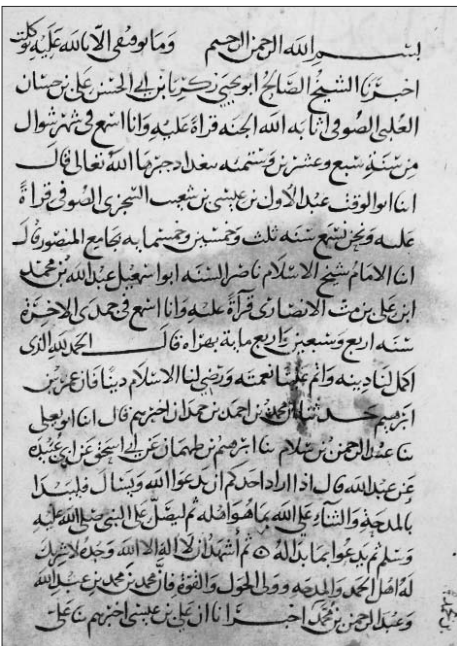 بسم الله الرحمن الرحيم وما توفيقي الا بالله عليه توكلت
اخبرنا الشيخ الصالح ابو يحيى زكريا بن ابي الحسن علي بن حسان
العلبي الصوفي اثابه الله الجنه قراة عليه وانا اسمع في شهر شوال
من سنة سبع وعشرين وستمئه ببغداد حرسها الله تعالى قال
انا ابو الوقت عبد الاول بن عيسى بن شعيب السجزي الصوفي قراة
عليه ونحن نسمع سنه ثلث وخمسين وخمسمايه بجامع المنصور قال
انا الامام شيخ الاسلام ناصر السنه ابو اسمعيل عبد الله بن محمد
ابن علي بن مت الانصاري قراة عليه وانا اسمع في جمدى الاخرة
سنه اربع وسبعين واربع ماية بهراه قال الحمد لله الذى
اكمل لنا دينه واتم علينا نعمته ورضي لنا الاسلام دينا فان عمر بن
ابرهيم حدثنا محمد بن احمد بن حمدان اخبرهم قال انا ابو يعلى
نا عبد الرحمن بن سلام نا ابرهيم بن طهمان عن ابي اسحق عن ابي عبيده
عن عبد الله قال اذا اراد احدكم ان يدعوا الله ويسال فليبدا
بالمدحة والثناء على الله بما هو اهله ثم ليصل على النبي صلى الله عليه
وسلم ثم يدعوا بما بدا له ثم اشهد ان لا اله الا الله وحده لا شريك
له اهل الحمد والمدحه وولى الحول والقوة فان محمد بن محمد بن عبد الله
وعبد الرحمن بن محمد اخبرانا ان علي بن عيسى اخبرهم نا علي